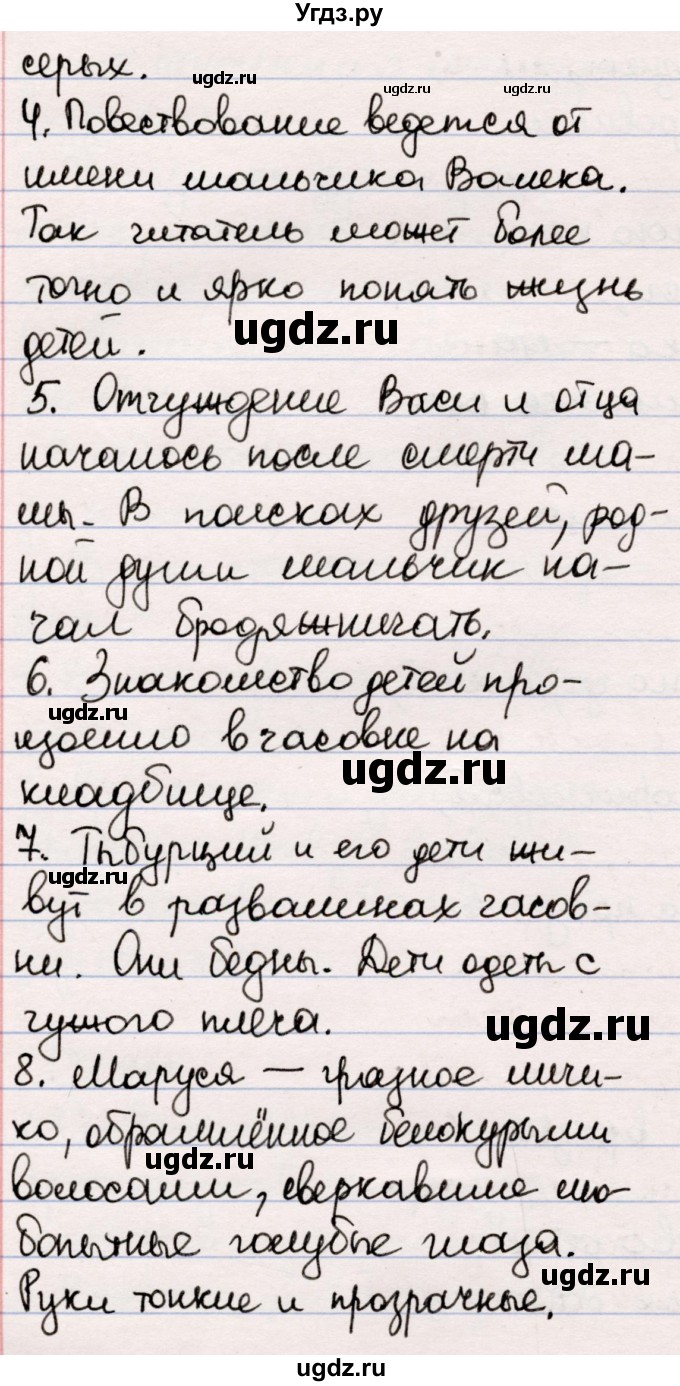 Угдз.ру
серых.
ugdz.ru ugdz.ru ugdz.ru
4. Повествование ведется от
имени мальчика Валека.
Так читатель может более
точно и ярко понять жизнь
ugdz.ru
детей.
5. Отчуждение Васи и отца
началось после смерти ма-
мы. В поисках друзей, род-
ной души мальчик на-
чал бродяжничать.
6. Знакомство детей про-
ugdz.ru
изошло в часовне на
ugdz.ru
кладбище.
7. Тыбурций и его дети жи-
ugdz.ru
вут в развалинах часов-
ни. Они бедны. Дети одеты с
чужого плеча.
ugdz.ru
8. Маруся — грязное личи-
ко, обрамлённое белокурыми
ugdz.ru
волосами, сверкавшие лю-
бопытные голубые глаза.
ugdz.ru
Руки тонкие и прозрачные.
ugdz.ru